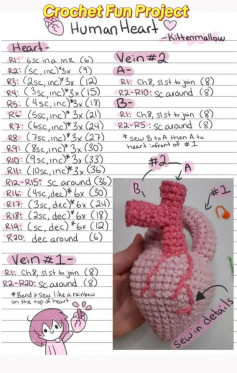 Crochet Fun Project
Human Heart
-Kittenmallow
Heart-
R1: 6sc in a m.R (6)
R2: (sc, inc)*3x (9)
R3: (2sc, inc)*3x (12)
R4: (3sc, inc)*3x (15)
R5: (4sc, inc)*3x (18)
R6: (5sc, inc)*3x (21)
R7: (6sc, inc)*3x (24)
R8: (7sc, inc)*3x (27)
R9: (8sc, inc)*3x (30)
R10: (9sc, inc)*3x (33)
R11: (10sc, inc)*3x (36)
R12-R15: sc around (36)
R16: (4sc, dec)*6x (30)
R17: (3sc, dec)*6x (24)
R18: (2sc, dec)*6x (18)
R19: (sc, dec)*6x (12)
R20: dec around (6)
Vein #1-
R1: Ch.8, sl.st to join (8)
R2-R20: sc around (8)
*Bend & sew like a rainbow
on the top of heart
Vein #2
A-
R1: Ch.8, sl.st to join (8)
R2-R10: sc around (8)
B-
R1: Ch.8, sl.st to join (8)
R2-R5: sc around (8)
*Sew B to A then A to
heart infront of #1
#2
B
A
#1
sew in details